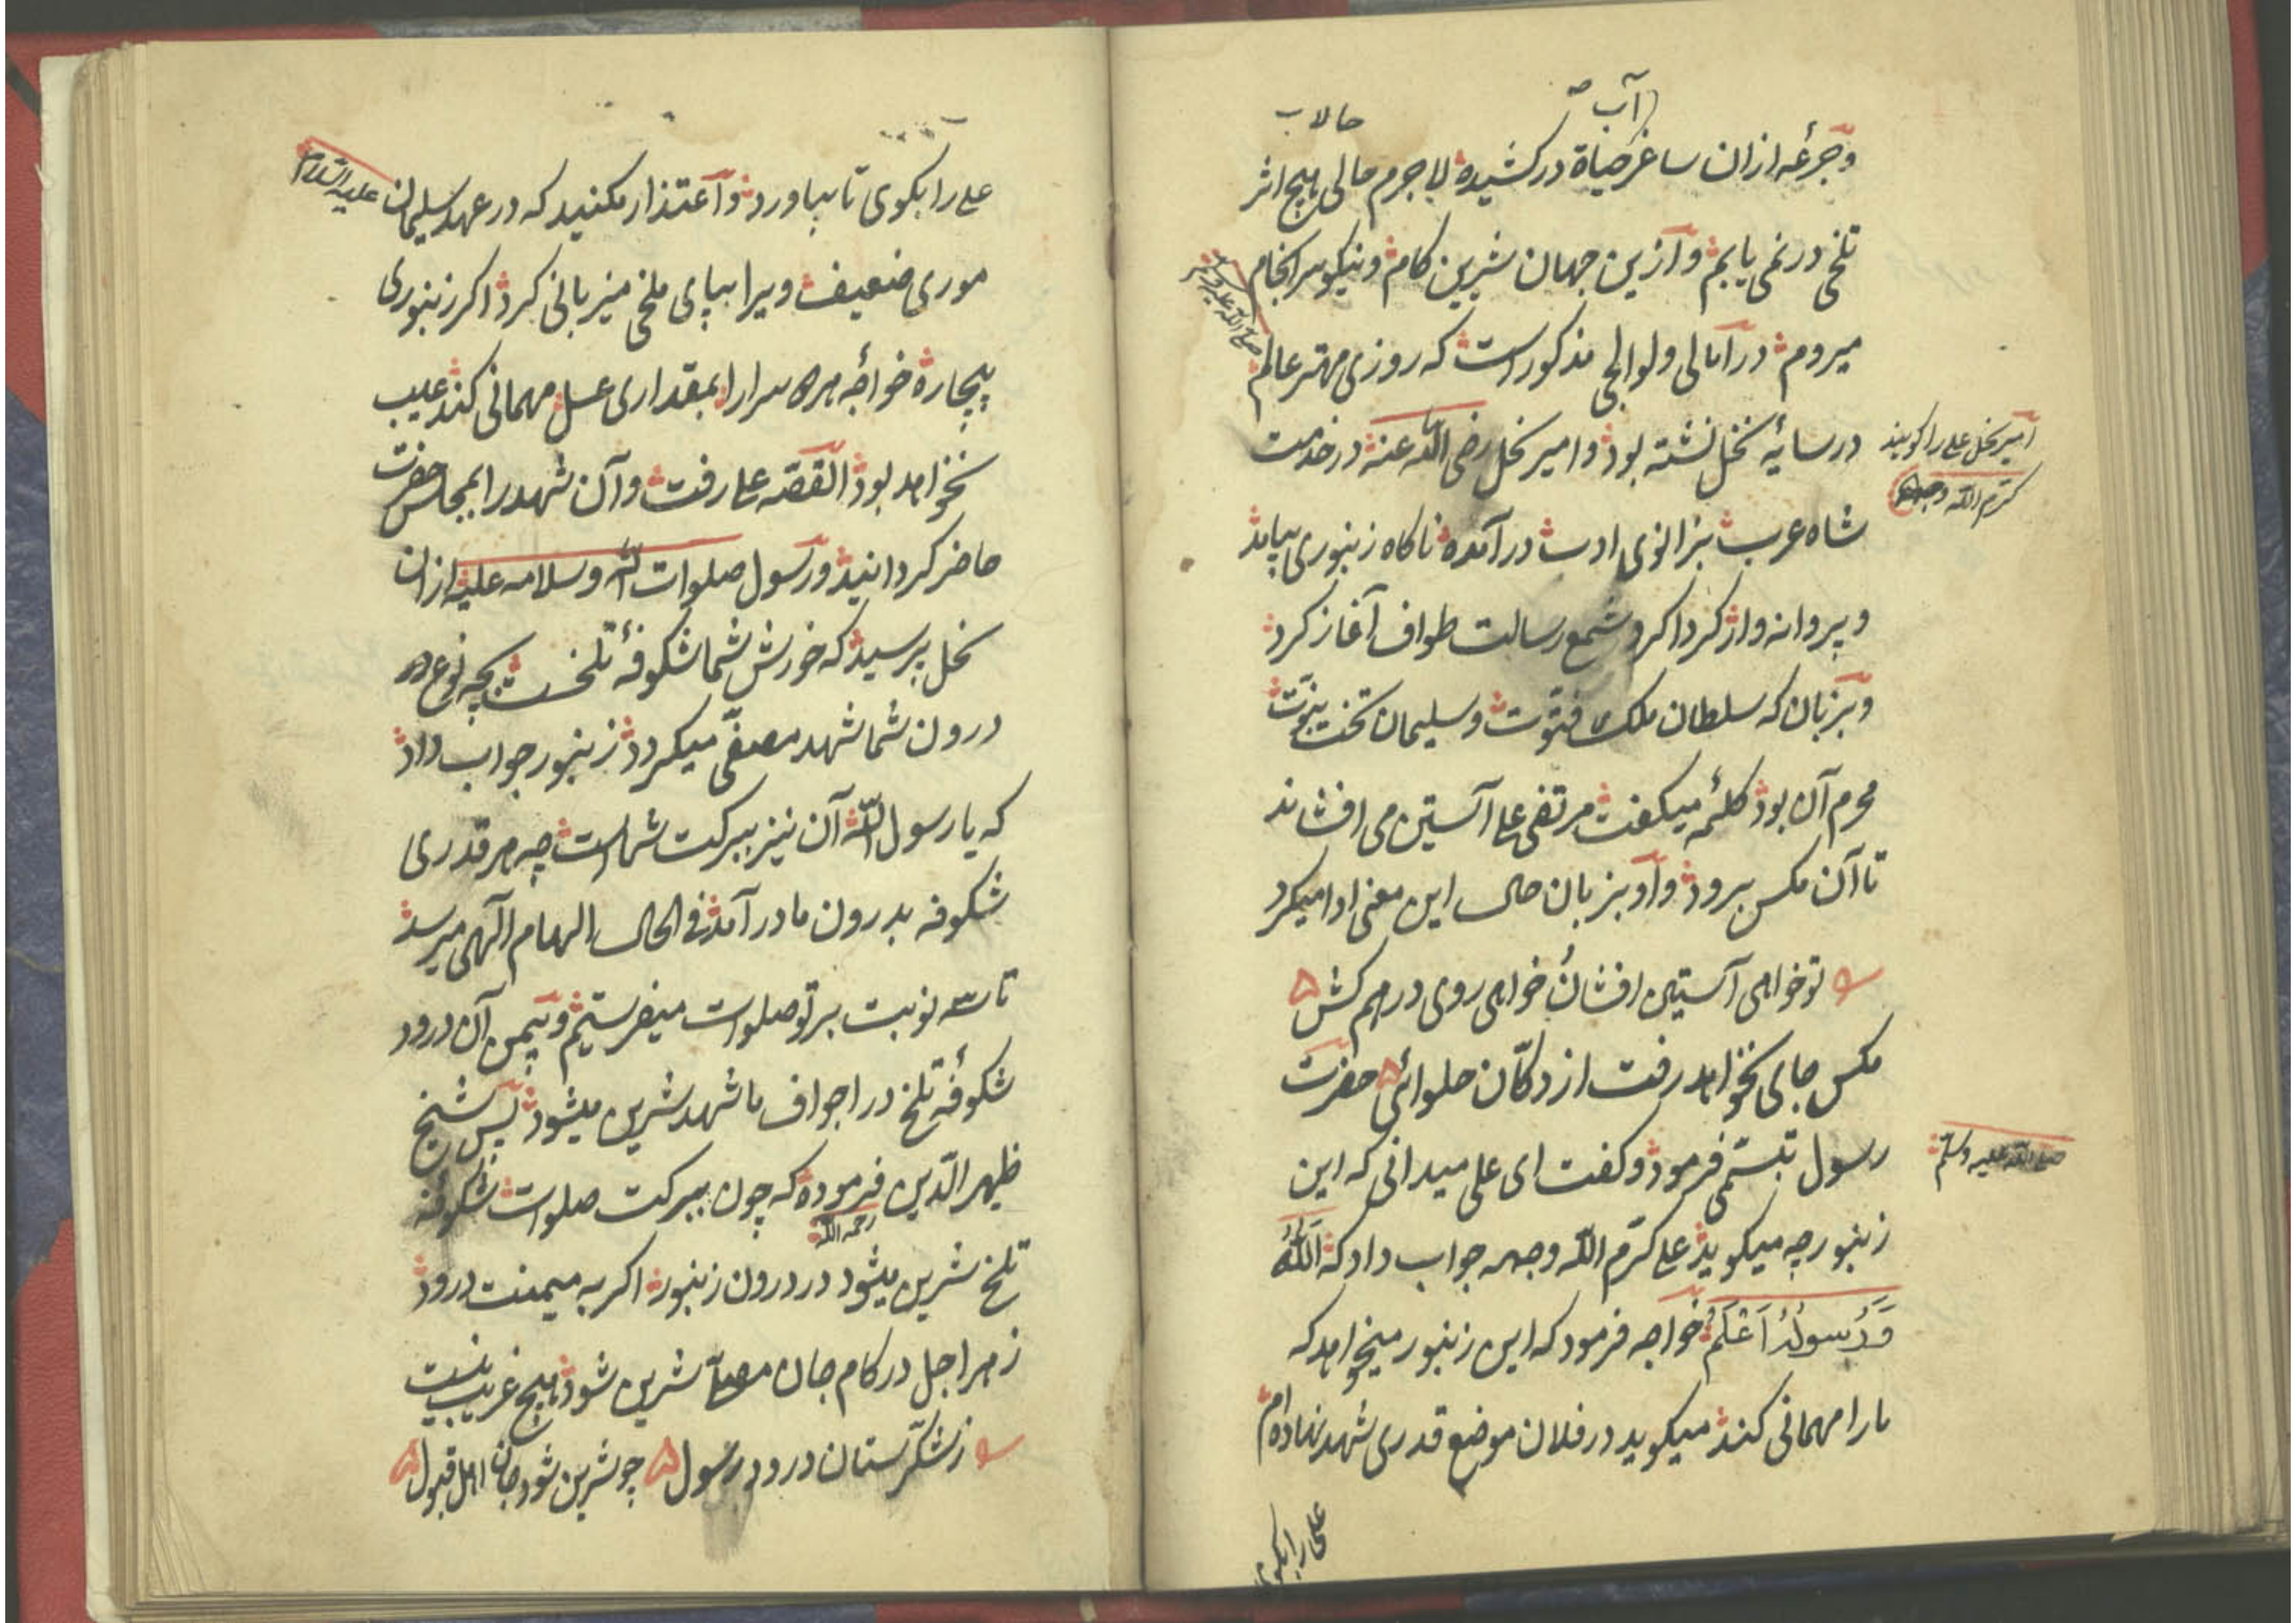 آب
حالا ب
و جرعهٔ ازان ساغر حیاة درکشیده لاجرم حالی هیچ اثر
تلخی درنمی یابم و ازین جهان شیرین کام و نیکو سرانجام
میروم در امالی ولوالجی مذکور است که روزی مهتر عالم
صلی الله علیه وسلم
در سایهٔ نخل نشسته بود و امیر نحل رضی الله عنه در خدمت
امیر نحل علی را کویند
کرم الله وجهه
شاه عرب بزانوی ادب درآمده ناکاه زنبوری بیامد
و پروانه وار کرداکرد شمع رسالت طواف آغاز کرد
و بزبان که سلطان ملک فتوت و سلیمان تخت نبوت
محرم آن بود کلمهٔ میکفت مرتضی علی آستین می افشاند
تا آن مکس برود و او بزبان حال این معنی ادا میکرد
تو خواهی آستین افشان خواهی روی درهم کش
مکس جای نخواهد رفت از دکان حلوائی حضرت
رسول تبسمی فرمود و کفت ای علی میدانی که این
صلی الله علیه وسلم
زنبور چه میکوید علی کرم الله وجهه جواب داد که الله
وَرَسُولُهُ اَعْلَمُ خواجه فرمود که این زنبور میخواهد که
مارا مهمانی کند میکوید در فلان موضع قدری شهد نهاده ام
علی را بکوی
علی را بکوی تا بیاورد و اعتذار مکنید که در عهد سلیمان
علیه السلام
موری ضعیف ویرا بپای ملخی میزبانی کرد اکر زنبوری
بیچاره خواجهٔ هر دو سرا را بمقداری عسل مهمانی کند عیب
نخواهد بود القصه علی رفت و آن شهد را بمجلس حضرت
حاضر کردانید و رسول صلوات الله وسلامه علیه ازان
نحل پرسید که خورش شما شکوفهٔ تلخست بچه نوع در
درون شما شهد مصفی میکردد زنبور جواب داد
که یا رسول الله آن نیز ببرکت شماست چه هر قدری
شکوفه بدرون ما درآمد فی الحال الهام الهی میرسد
تا سه نوبت بر تو صلوات میفرستیم و بیمن آن درود
شکوفهٔ تلخ در اجواف ما شهد شیرین میشود پس شیخ
ظهیر الدین فرموده که چون ببرکت صلوات شکوفه
رحمه الله
تلخ شیرین میشود در درون زنبور اکر به میمنت درود
زهر اجل در کام جان مصلی شیرین شود هیچ غریب نیست
ز شکرستان درود رسول چو شیرین شود جان اهل قبول